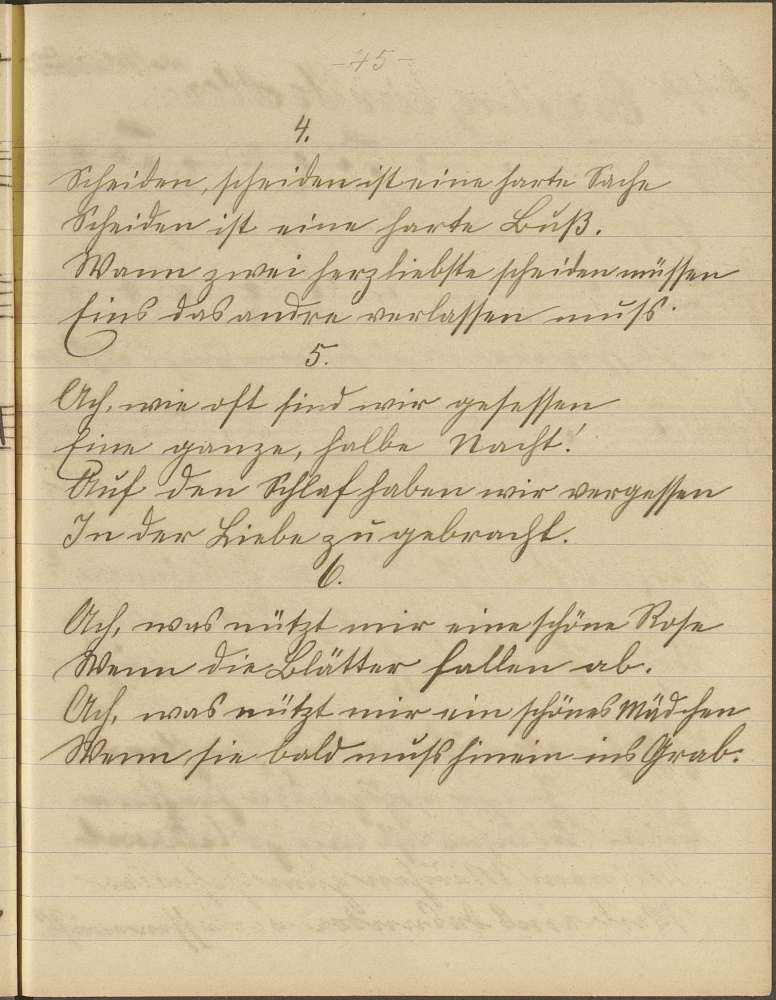 - 45 -
4.
Scheiden, scheiden ist eine harte Sache
Scheiden ist eine harte Buß.
Wann zwei herzliebste scheiden müssen
Eins das andre verlassen muß.
5.
Ach, wie oft sind wir gesessen
Eine ganze, halbe Nacht!
Auf den Schlaf haben wir vergessen
In der Liebe zu gebracht.
6.
Ach, was nützt mir eine schöne Rose
Wenn die Blätter fallen ab.
Ach, was nützt mir ein schönes Mädchen
Wenn sie bald muß hinein ins Grab.